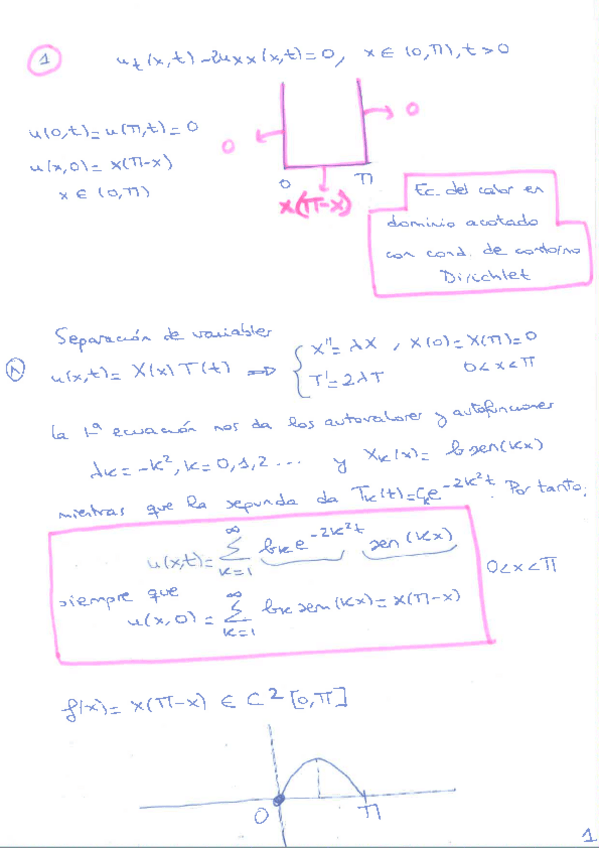 1
u_t(x,t) - 2u_xx(x,t) = 0, x ∈ (0,π), t > 0
u(0,t) = u(π,t) = 0
u(x,0) = x(π-x)
x ∈ (0,π)
0
0
0 π
x(π-x)
Ec. del calor en
dominio acotado
con cond. de contorno
Dirichlet
Separación de variables
u(x,t) = X(x)T(t) ⇒ { X'' = λX, X(0) = X(π) = 0
T' = 2λT 0<x<π
La 1ª ecuación nos da los autovalores y autofunciones
λ_k = -k², k = 0,1,2... y X_k(x) = b sen(kx)
mientras que la segunda da T_k(t) = C_k e^{-2k²t}. Por tanto:
u(x,t) = ∑_{k=1}^∞ b_k e^{-2k²t} sen(kx)
0<x<π
siempre que
u(x,0) = ∑_{k=1}^∞ b_k sen(kx) = x(π-x)
f(x) = x(π-x) ∈ C²[0,π]
0 π
1